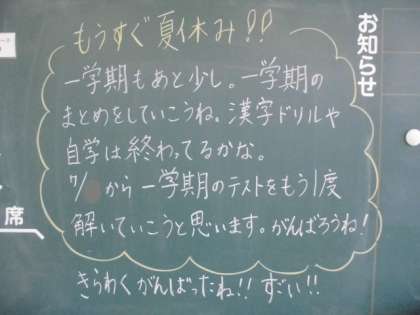 お知らせ
もうすぐ夏休み!!
一学期もあと少し。一学期の
まとめをしていこうね。漢字ドリルや
自学は終わってるかな。
7/ から一学期のテストをもう1度
解いていこうと思います。がんばろうね!
きらわく がんばったね!! すごい!!
席